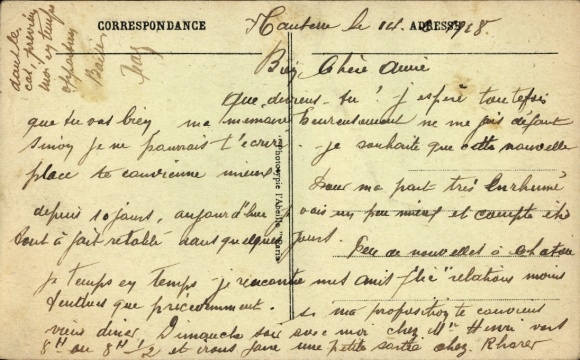 CORRESPONDANCE
ADRESSE
Nanterre le 14. 8 1918.
Bien Chère Amie
Que deviens-tu? j'espère toutefois
que tu vas bien ma mémoire heureusement ne me fais défaut
sinon je ne pourrais t'écrire. je souhaite que cette nouvelle
place te convienne mieux.
Pour ma part très enrhumé
depuis 10 jours, aujourd'hui je vais un peu mieux et compte être
tout à fait rétabli dans quelques jours.
Peu de nouvelles à Chatou
de temps en temps je rencontre mes amis relations moins
tendues que précédemment. si ma proposition te convient
viens diner Dimanche soir avec moi chez Mme Henri vers
8H ou 8H 1/2 et irons faire une petite soirée chez
dans le
cas, préviens
moi en temps
opportun
Baisers
Phototypie l'Abeille, Paris